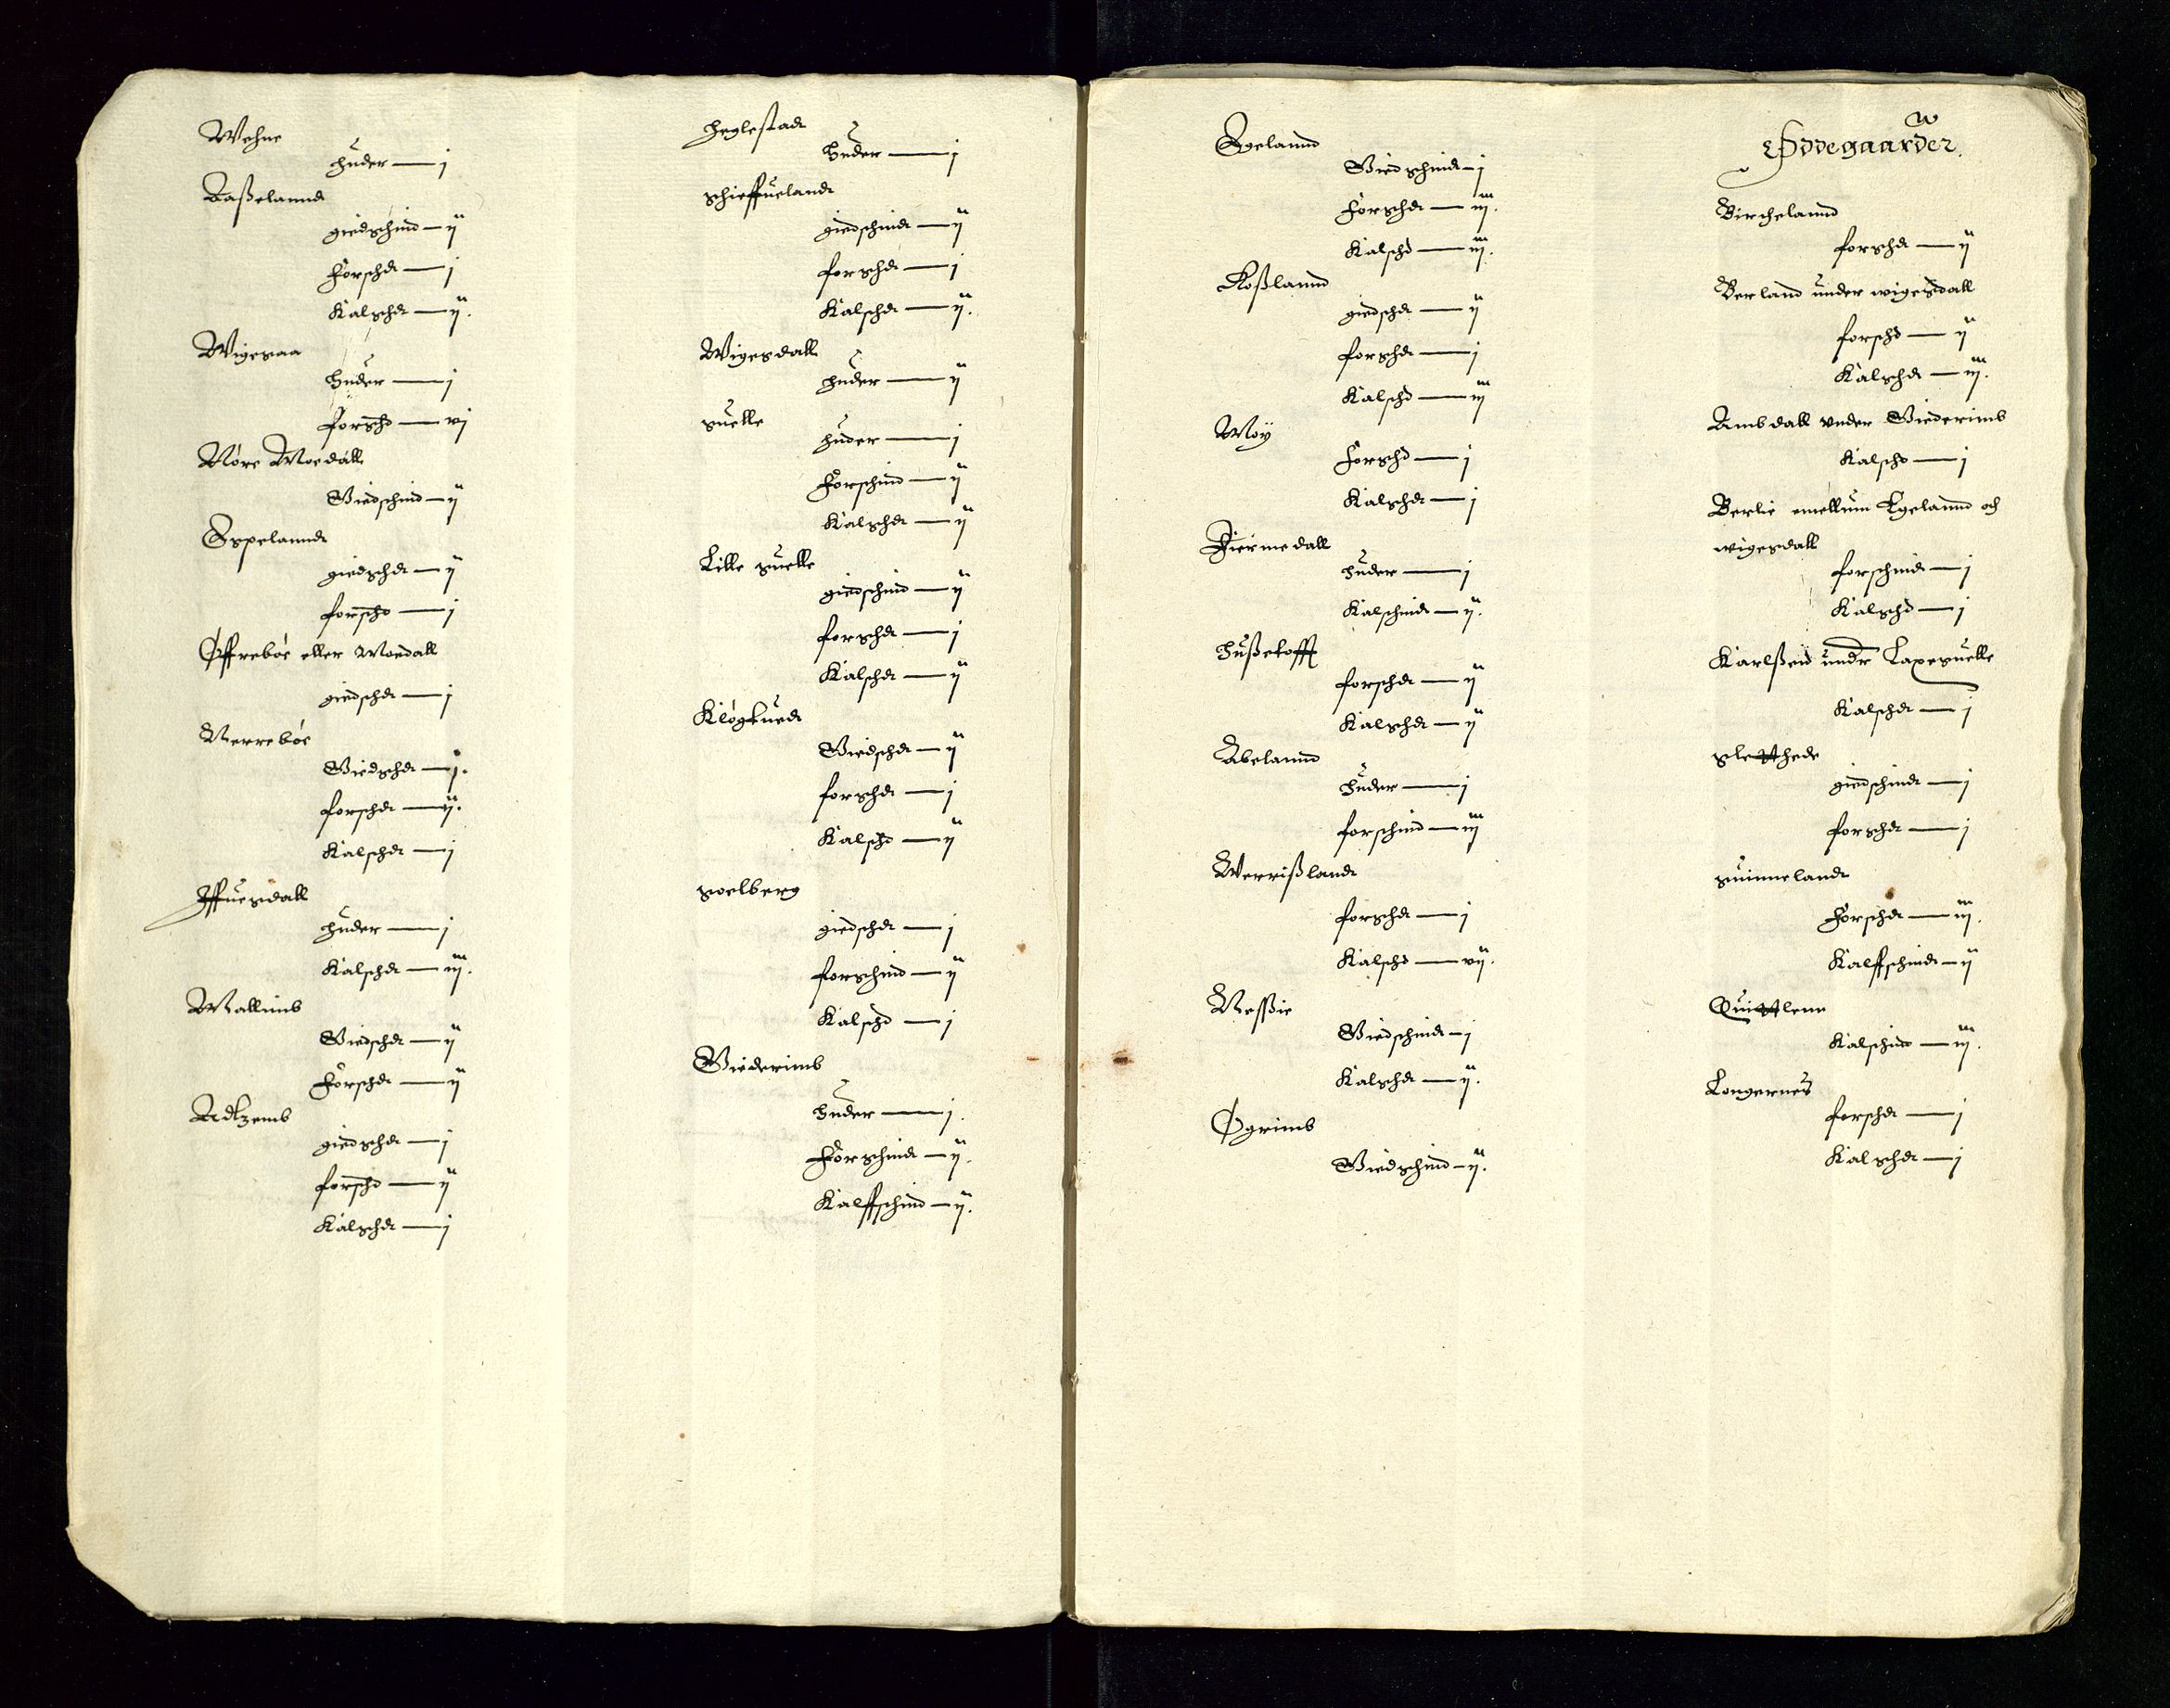 Wehne
huder — j
Raßelannd
giedschind — ij
Forschd — j
Kalschd — ij.
Wigesaa
Huder — j
forschd — vj
Nóre Moedall
Giedschind — ij
Espelannd
giedschd — ij
forschd — j
Øffrebóe eller Moedall
giedschd — j
Nerrebóe
Giedschd — j.
forschd — ij.
Kalschd — j
Iffuesdall
huder — j
Kalschd — iij.
Mallimb
Giedschd — ij
Forschd — ij
Adtzemb
giedschd — j
forschd — ij
Kalschd — j
Heglestad
Huder — j
schieffueland
giedschind — ij
forschd — j
Kalschd — ij.
Wigesdall
huder — ij
suelle
huder — j
Forschind — ij
Kalschd — ij
Lille suelle
giedschind — ij
forschd — j
Kalschd — ij
Klógtued
Giedschd — ij
forschd — j
Kalschd — ij
soelberg
giedschd — j
forschind — ij
Kalschd — j
Giederimb
Huder — j.
Forschind — ij.
Kalffschind — ij.
Egelannd
Giedschind — j
Forschd — iij.
Kalschd — iij.
Roßlannd
giedschd — ij
forschd — j
Kalschd — iij
Moÿ
Forschd — j
Kalschd — j
Fiermedall
huder — j
Kalschind — ij.
Hußetofft
forschd — ij
Kalschd — ij
Abelannd
Huder — j
forschind — iij
Werrißland
forschd — j
Kalschd — vij.
Neßie
Giedschind — j
Kalschd — ij.
Øgrimb
Giedschind — ij.
Øddegaarder.
Birchelannd
forschd — ij
Berland under wigesdall
forschd — ij
Kalschd — iij.
Ambdall vnder Giederimb
Kalschd — j
Berlie emellum Egelannd och
wigesdall
forschind — j
Kalschd — j
Karlßeid undr Laxesuelle
Kalschd — j
sletthede
giedschind — j
forschd — j
suineland
Forschd — iij.
Kalffschind — ij
Quittlenn
Kalschind — iij.
Longernes
forschd — j
Kalschd — j